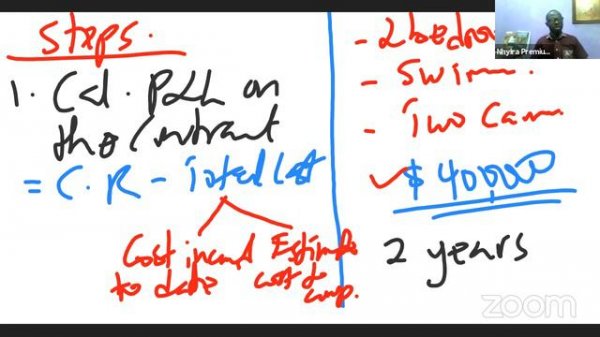 Steps.
1. Cal. P&L on
the Contract
= C.R - Total Cost
Cost incurred
to date
Estimate
cost to
comp.
- 2 bedroo
- Swim
- Two
✓ $ 40,000
2 years
Nhyira Premiu...
zoom